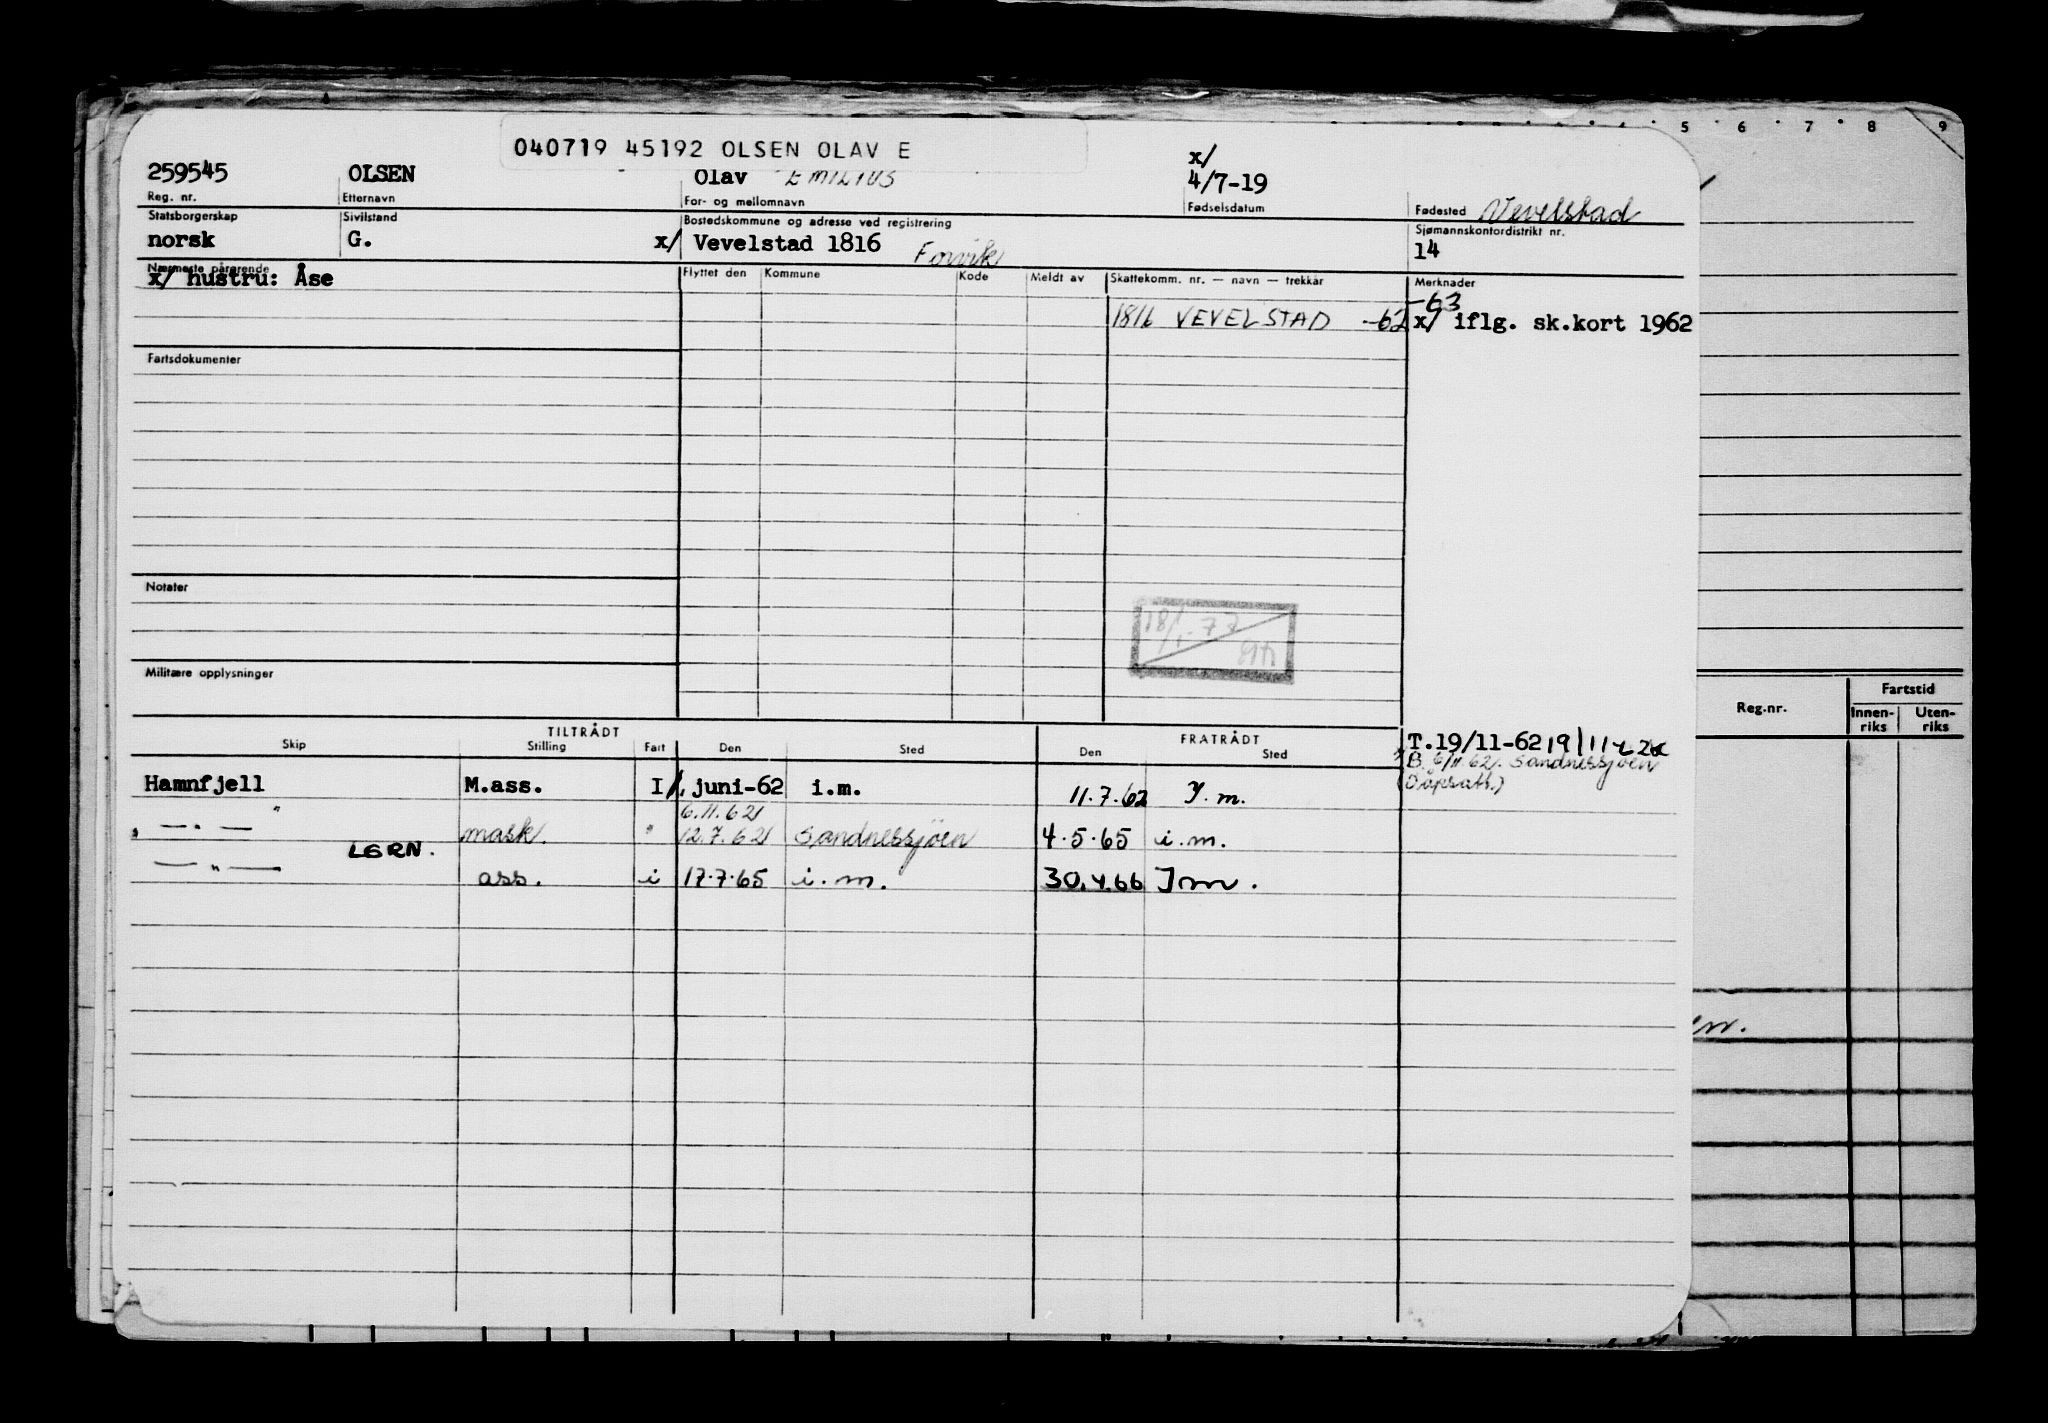 5 6 7 8 9
040719 45192 OLSEN OLAV E
259545 OLSEN Olav EMILIUS x/ 4/7-19
Reg. nr. Etternavn For- og mellomnavn Fødselsdatum Fødested Vevelstad
Statsborgerskap Sivilstand Bostedskommune og adresse ved registrering Sjømannskontordistrikt nr.
norsk G. x/ Vevelstad 1816 Forvik 14
Nærmeste pårørende Flyttet den Kommune Kode Meldt av Skattekomm. nr. — navn — trekkår Merknader
x/ hustru: Åse
-63
1816 VEVELSTAD -62 x/ iflg. sk.kort 1962
Fartsdokumenter
Notater
18/1-77
Militære opplysninger
Fartstid
Reg.nr. Innen-riks Uten-riks
TILTRÅDT FRATRÅDT
Skip Stilling Fart Den Sted Den Sted
T.19/11-62 19/11-62
B. 6/11.62. Sandnessjøen
Hamnfjell M.ass. I/. juni-62 i.m. 11.7.62 I.m.
6.11.62
— " — mask. " 12.7.62 Sandnessjöen 4.5.65 i.m.
LGRN.
— " — ass. i 17.7.65 i.m. 30.4.66 Im.